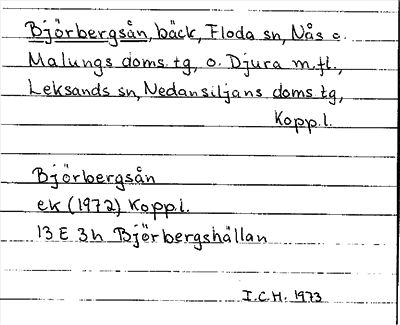 Björbergsån, bäck, Floda sn, Nås o.
Malungs doms.tg, o. Djura m.fl.,
Leksands sn, Nedansiljans doms.tg,
Kopp.l.
Björbergsån
ek (1972) Kopp.l.
13 E 3h Björbergshällan
I.C.H. 1973